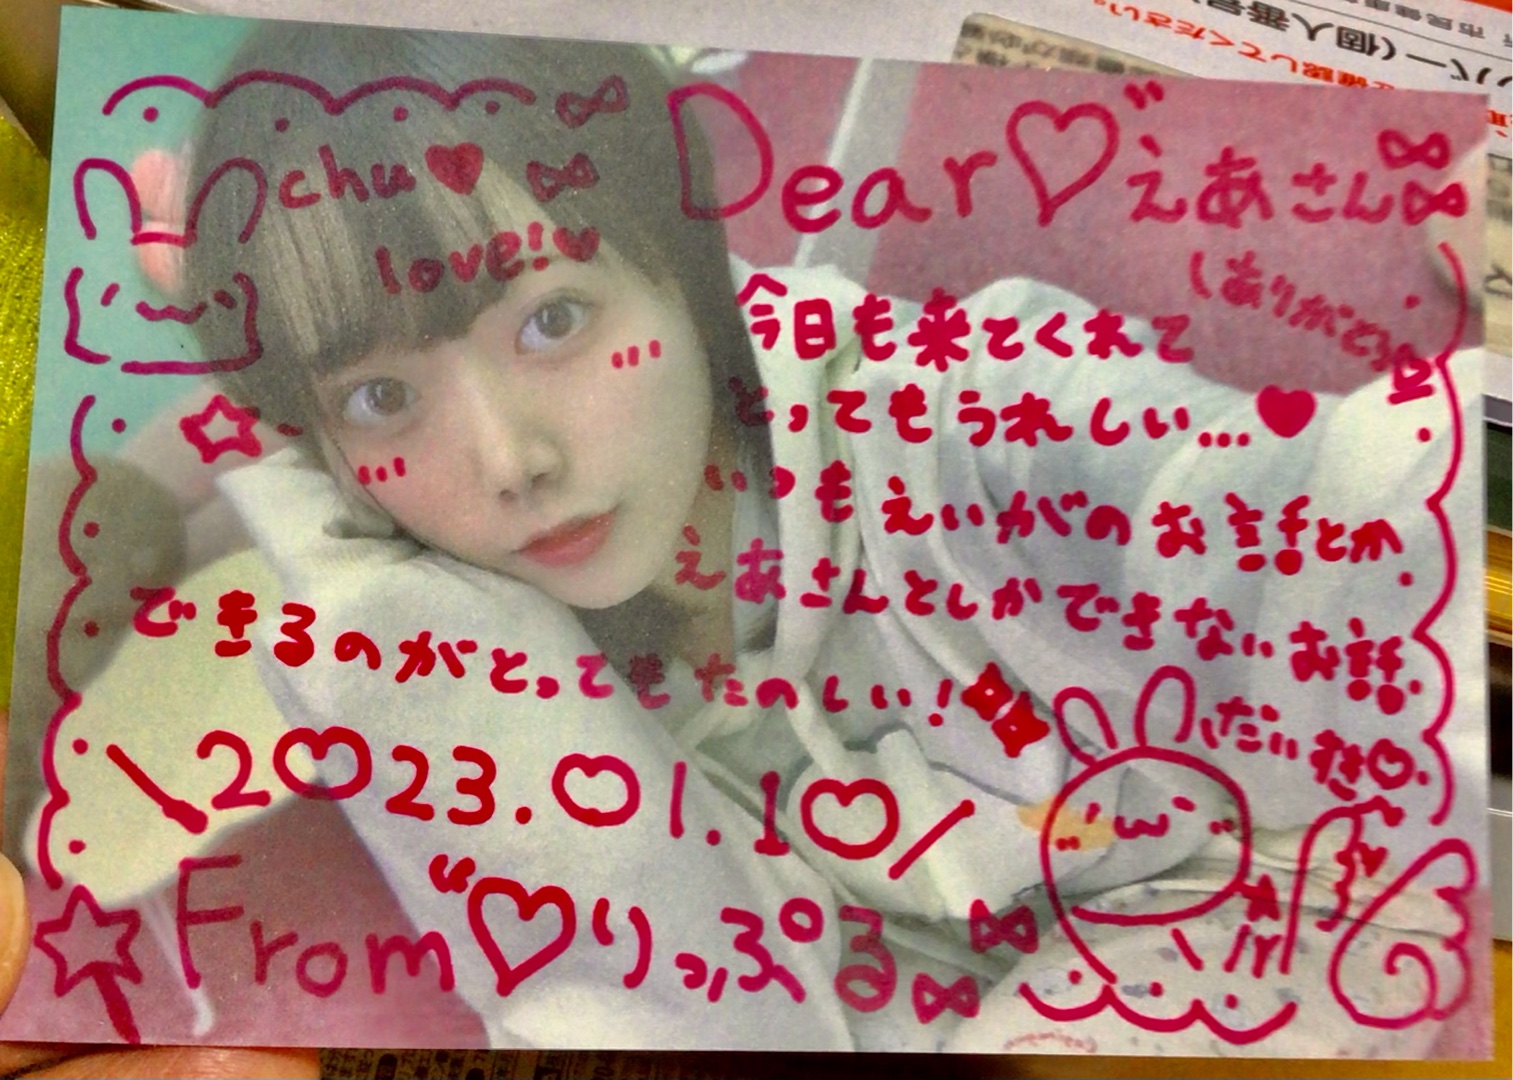 chu♥
love!♥
Dear♡えあさん
ありがとう
今日も来てくれて
とってもうれしい...♥
いつもえいがのお話とか
えあさんとしかできないお話
できるのがとってもたのしい!
だいすき♡
\2023.01.10/
From♡りっぷる
バー(個人番号
確認してください。